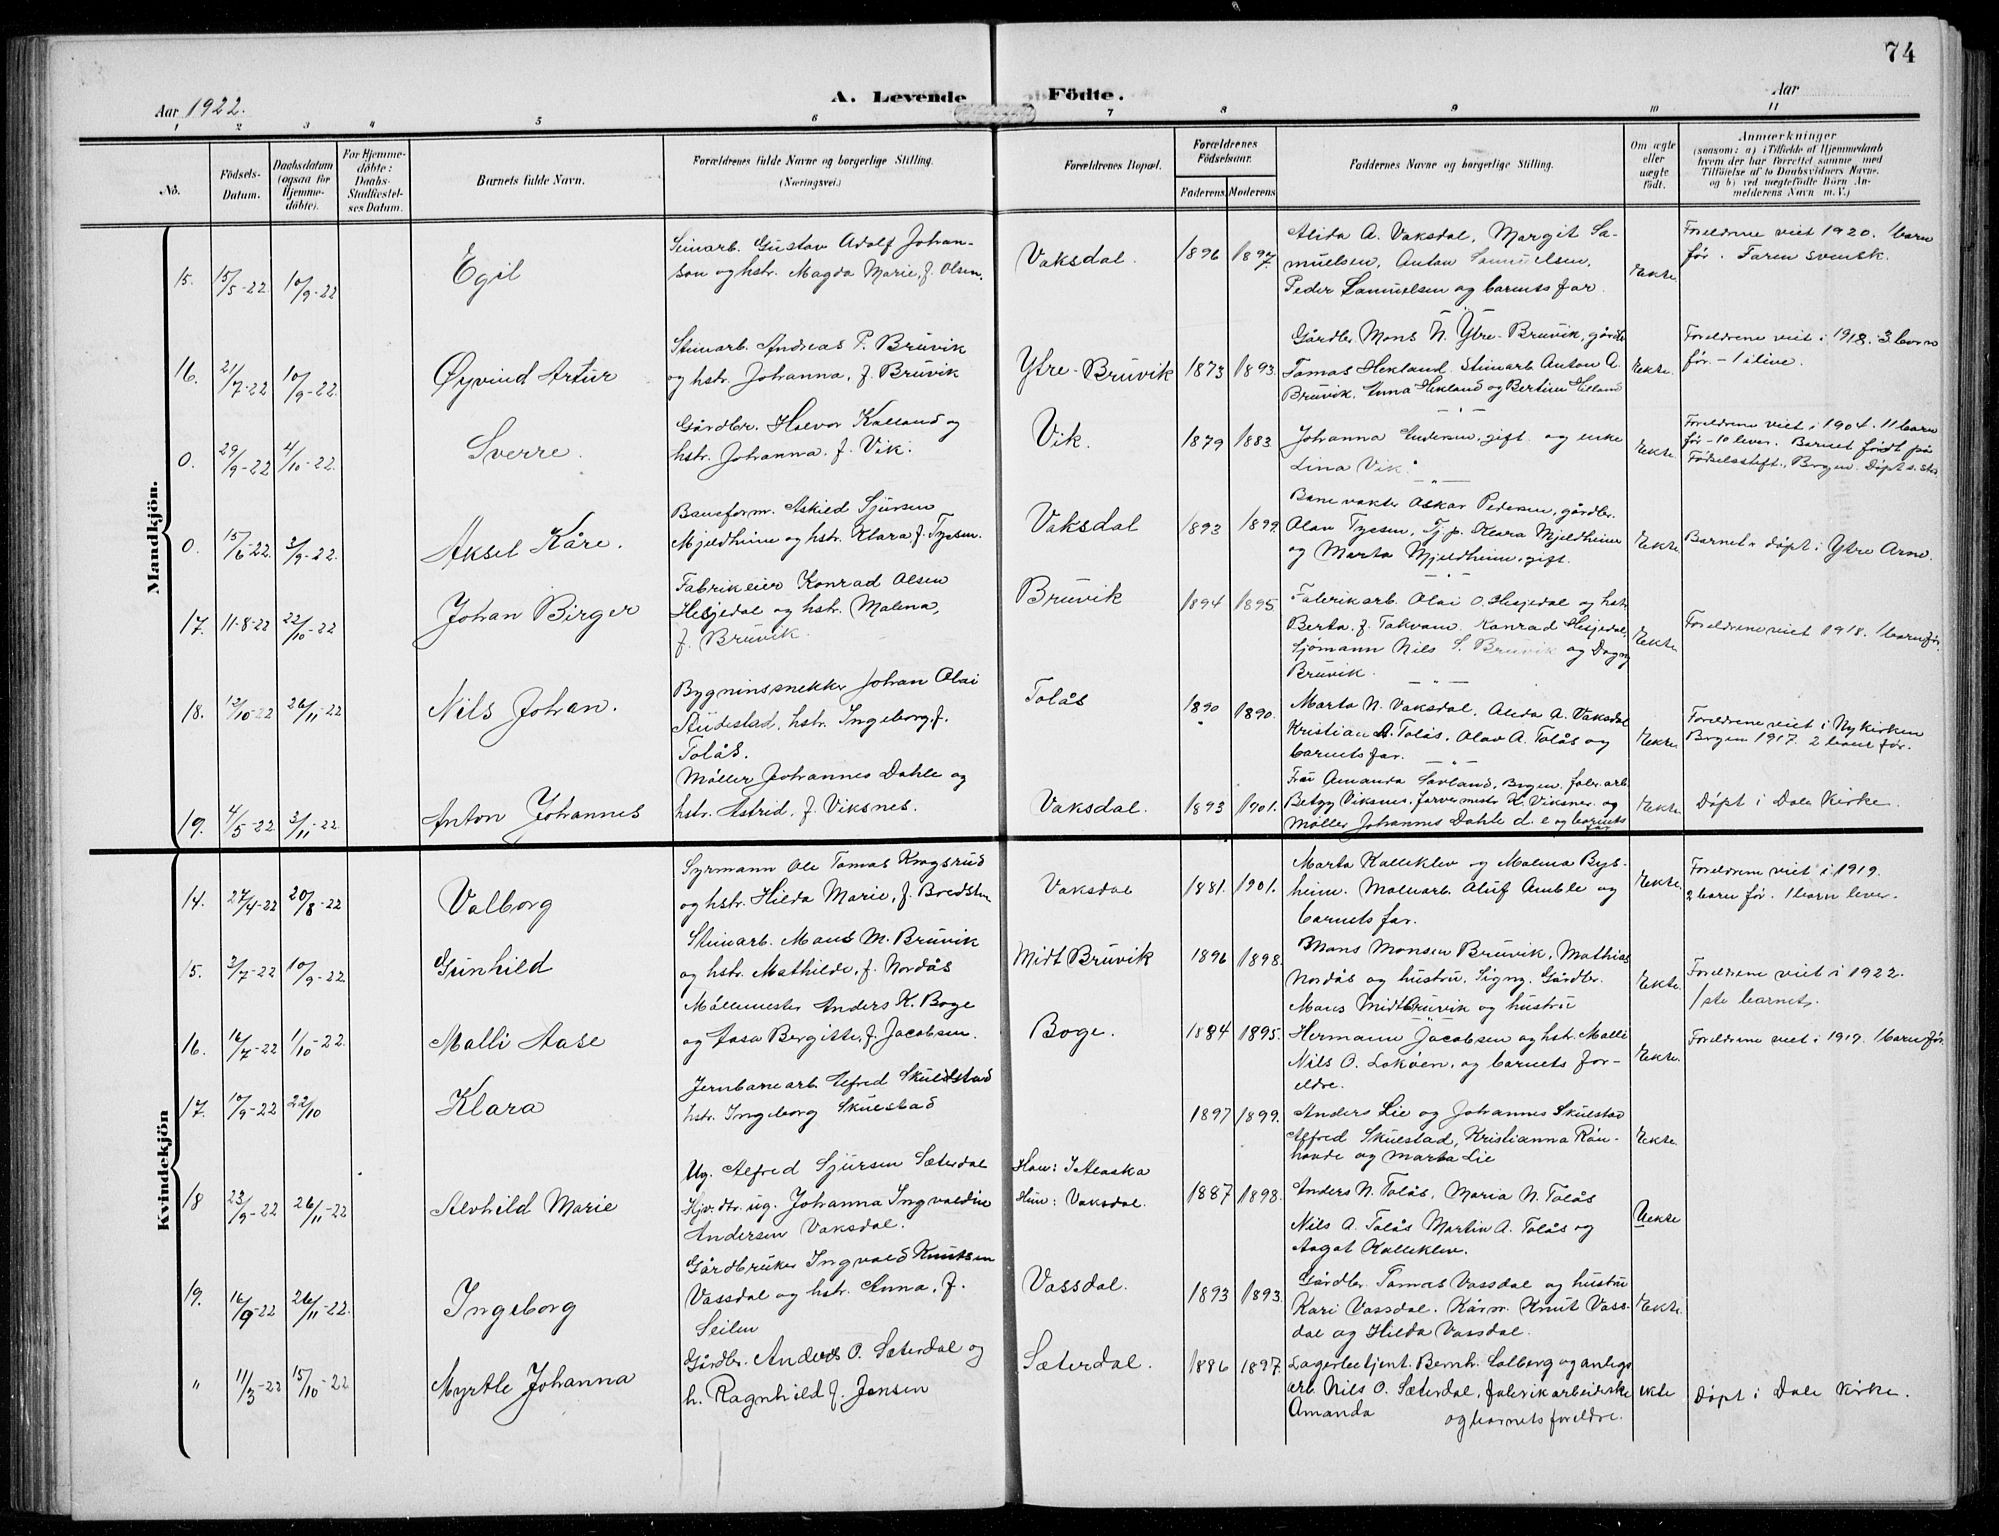 74
Aar 1922.
A. Levende Födte.
Aar
1 2 3 4 5 6 7 8 9 10 11
No.
Födsels-Datum.
Daabsdatum (ogsaa for Hjemme-döbte).
For Hjemme-döbte: Daabs-Stadfæstel-ses Datum.
Barnets fulde Navn.
Forældrenes fulde Navne og borgerlige Stilling.
(Næringsvei.)
Forældrenes Bopæl.
Forældrenes Födselsaar.
Faderens. Moderens.
Faddernes Navne og borgerlige Stilling.
Om ægte eller uægte født.
Anmærkninger
(saasom: a) i Tilfælde af Hjemmedaab
hvem der har forrettet samme, med
Tilföielse af to Daabsvidners Navne.
og b) ved uægtefödte Börn An-
melderens Navn m. V.)
Mandkjön.
15. 15/5-22 10/9-22 Egil
Stinarb. Gustav Adolf Johan-
son og hstr. Magda Marie, f. Olsen.
Vaksdal. 1896 1897.
Alida A. Vaksdal, Margit Sa-
muelsen, Anton Samuelsen,
Peder Samuelsen og barnets far.
Ekte.
Foreldrene viet 1920. 1 barn
før. Faren svensk.
16. 21/7-22 10/9-22. Øyvind Artur
Stinarb. Andreas P. Bruvik
og hstr. Johanna, f. Bruvik
Ytre-Bruvik 1873 1893.
Gårdbr. Mons N. Ytre-Bruvik, gårdbr
Tomas Hekland, Stinarb Anton A.
Bruvik, Anna Hekland og Bertine Helland
Ekte.
Foreldrene viet i 1918. 3 barn
før. - 1 ilive.
0. 29/9-22 4/10-22. Sverre.
Gårdbr. Halvor Kalland og
hstr. Johanna, f. Vik.
Vik. 1879 1883.
Johanna Andersen, gift og enke
Lina Vik.
Ekte.
Foreldrene viet i 1904. 11 barn
før - 10 lever. Barnet født på
Fødselsstift., Bergen. Døpt s. sts
0. 15/6-22. 3/9-22. Aksel Kåre.
Baneform. Askild Sjursen
Mjeldheim og hstr. Klara f. Tyssen.
Vaksdal 1893 1899.
Banevakte Oskar Pedersen, gårdbr.
Olav Tyssen, Tj. p. Klara Mjeldheim
og Marta Mjeldheim, gift.
Ekte.
Barnet døpt i Ytre Arne.
17. 11-8-22 22/10-22 Johan Birger
Fabrikeier Konrad Olsen
Hesjedal og hstr. Malena,
f. Bruvik.
Bruvik 1894 1895.
Fabrikarb. Olai O. Hesjedal og hstr
Berta, f. Takvam. Konrad Hesjedal,
Sjømann Nils S. Bruvik og Dagny
Bruvik.
Ekte.
Foreldrene viet 1918. 1 barn før.
18. 12/10-22 26/11-22 Nils Johan.
Bygninssnekker Johan Olai
Rudestad, hstr. Ingeborg, f.
Tolås.
Tolås 1890 1890.
Marta N. Vaksdal, Alida A. Vaksdal
Kristian A. Tolås, Olav A. Tolås og
barnets far.
Ekte.
Foreldrene viet i Nykirken
Bergen 1917. 2 barn før.
19. 4/5-22 3/11-22 Anton Johannes
Møller Johannes Dahle og
hstr. Astrid, f. Viksnes.
Vaksdal. 1893 1901.
Fru Amanda Søvland, Bergen, fabr. arb.
Betzy Viksnes, farvermestr K. Viksnes og
Møller Johannes Dahle d. e og barnets
far
Ekte.
Døpt i Dale Kirke.
Kvindekjön
14. 27/4-22 20/8-22 Valborg
Syrmann Ole Tomas Krogsrud
og hstr. Hilda Marie, f. Bredsten
Vaksdal 1881. 1901.
Marta Kalleklev og Malena Bys-
heim. Malerarb. Oluf Amble og
barnets far.
Ekte.
Foreldrene viet i 1919.
2 barn før. 1 barn lever.
15. 3/7-22 10/9-22. Gunhild
Stinarb. Mons M. Bruvik
og hstr. Mathilde, f. Nordås
Midt Bruvik 1896 1898.
Mons Monsen Bruvik, Mathias
Nordås og hustru, Signy. Gårdbr.
Mons Midtbruvik og hustru
Ekte.
Foreldrene viet i 1922.
1ste barnet.
16. 16/7-22 1/10-22. Malli Aase
Møllemester Anders K. Boge
og Aasa Bergitte, f. Jacobsen.
Boge. 1884 1895.
Hermann Jacobsen og hstr. Malli
Nils O. Lokøen, og barnets for-
eldre.
Ekte.
Foreldrene viet i 1919. 1 barn før.
17. 10/9-22 22/10 Klara
Jernbanearb. Alfred Skulstad
hstr. Ingeborg Skulstad
1897 1899.
Anders Lie og Johannes Skulstad
Alfred Skulstad, Kristianna Røn-
hovde og Marta Lie
Ekte.
18 23/9-22 26/11-22 Alvhild Marie
Ug. Alfred Sjursen Sæterdal
Hjv. dtr. ug. Johanna Ingvaldine
Andersen Vaksdal.
Han: I Alaska
Hun: Vaksdal. 1887 1898.
Anders N. Tolås, Maria N. Tolås
Nils A. Tolås Martin A. Tolås og
Aagot Kalleklev.
Uekte
19. 16/9-22 26/11-22. Ingeborg
Gårdbruker Ingvald Knutsen
Vassdal og hstr. Anna, f.
Seilen
Vassdal. 1893 1893.
Gårdbr. Tomas Vassdal og hustru
Kari Vassdal. Kårm. Knut Vass-
dal og Hilda Vassdal.
Ekte.
" 11/3-22 15/10-22 Myrtle Johanna
Gårdbr. Anders O. Sæterdal og
h. Ragnhild f. Jensen
Sæterdal. 1886 1897.
Lagerbetjent. Bernh. Solberg og anlegs
arb. Nils O. Sæterdal, fabrikarbeiderske
Amanda og barnets foreldre.
ekte
Døpt i Dale Kirke.